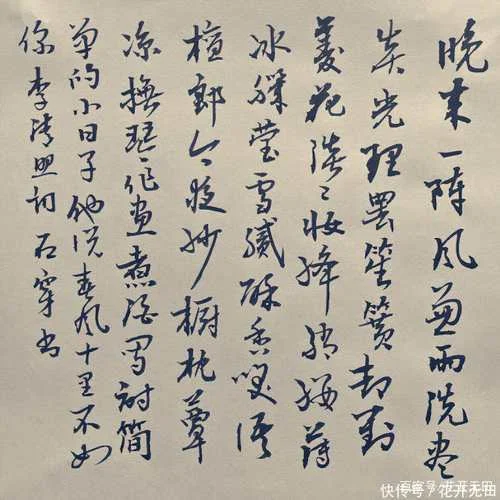 晚来一阵风兼雨洗尽
炎光理罢笙簧却对
菱花淡〻妆绛绡缕薄
冰肌莹雪腻酥香笑语
檀郎今夜纱橱枕簟
凉抚琴作画煮酒写诗简
单的小日子他说春风十里不如
你李清照词石穿书
快传号/花开无田